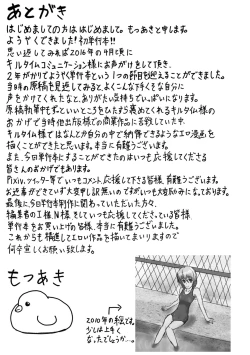 あとがき
はじめましての方ははじめまして。もっつあきと申します。
ようやくできました!初単行本!!
思い返してみれば2016年の4月頃に
キルタイムコミュニケーション様にお声がけをして頂き、
2年がかりでようやく単行本という1つの節目を迎えることができました。
当時の原稿を見返してみると、よくこんな下手くそな自分に
声をかけてくれたなと、ありがたい気持ちでいっぱいになります。
原稿作業中もずっといいところをひたすら褒めてくれるキルタイム様の
おかげで当時他出版様での商業作品に
キルタイム様ではなんとか自分の中で納得できるようなエロ漫画を
描くことができたと思います。本当に有難うございます。
また、今回単行本にすることができたのはいつも応援してくださる
皆さんのおかげでもあります。
Pixiv、ツイッター等でいつもコメント、応援して下さる皆様、有難うございます。
お返事ができていず大変申し訳無いのですがいつも大変励みになっております。
最後に、今回単行本制作に関わっていただいた方々、
編集者のI様、N様、そしていつも応援してくださっている皆様、
単行本をお買い上げの皆様、本当に有難うございました。
これからも精進してエロい作品を描いてまいりますので
何卒宜しくお願い致します。
もつあき
2010年の絵です。
少しは上手く
なったでしょうか…。